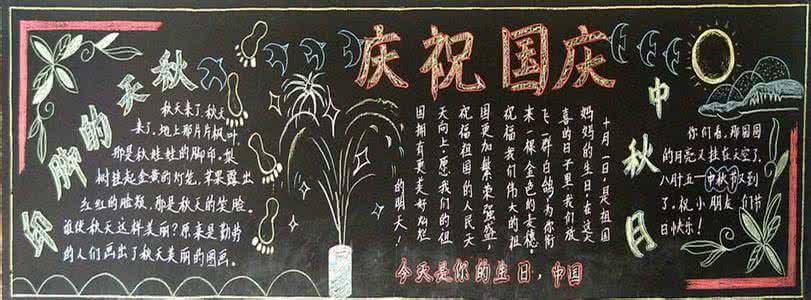 秋天的脚印
秋天来了,秋天
来了,地上那片片枫叶,
那是秋娃娃的脚印。梨
树挂起金黄的灯笼,苹果露出
红红的脸颊,那是秋天的笑脸。
谁使秋天这样美丽?原来是勤劳
的人们画出了秋天美丽的图画。
庆祝国庆
十月一日是祖国
妈妈的生日,在这大
喜的日子里,我们放
飞一群白鸽,为你衔
来一棵金色的麦穗。
祝福我们伟大的祖
国更加繁荣强盛,
祝福祖国的人民天
天向上,愿我们的祖
国拥有更美好灿烂
的明天!
今天是你的生日,中国
中秋月
你们看,那圆圆
的月亮又挂在天空了,
八月十五—中秋节又到
了,祝小朋友们节
日快乐!